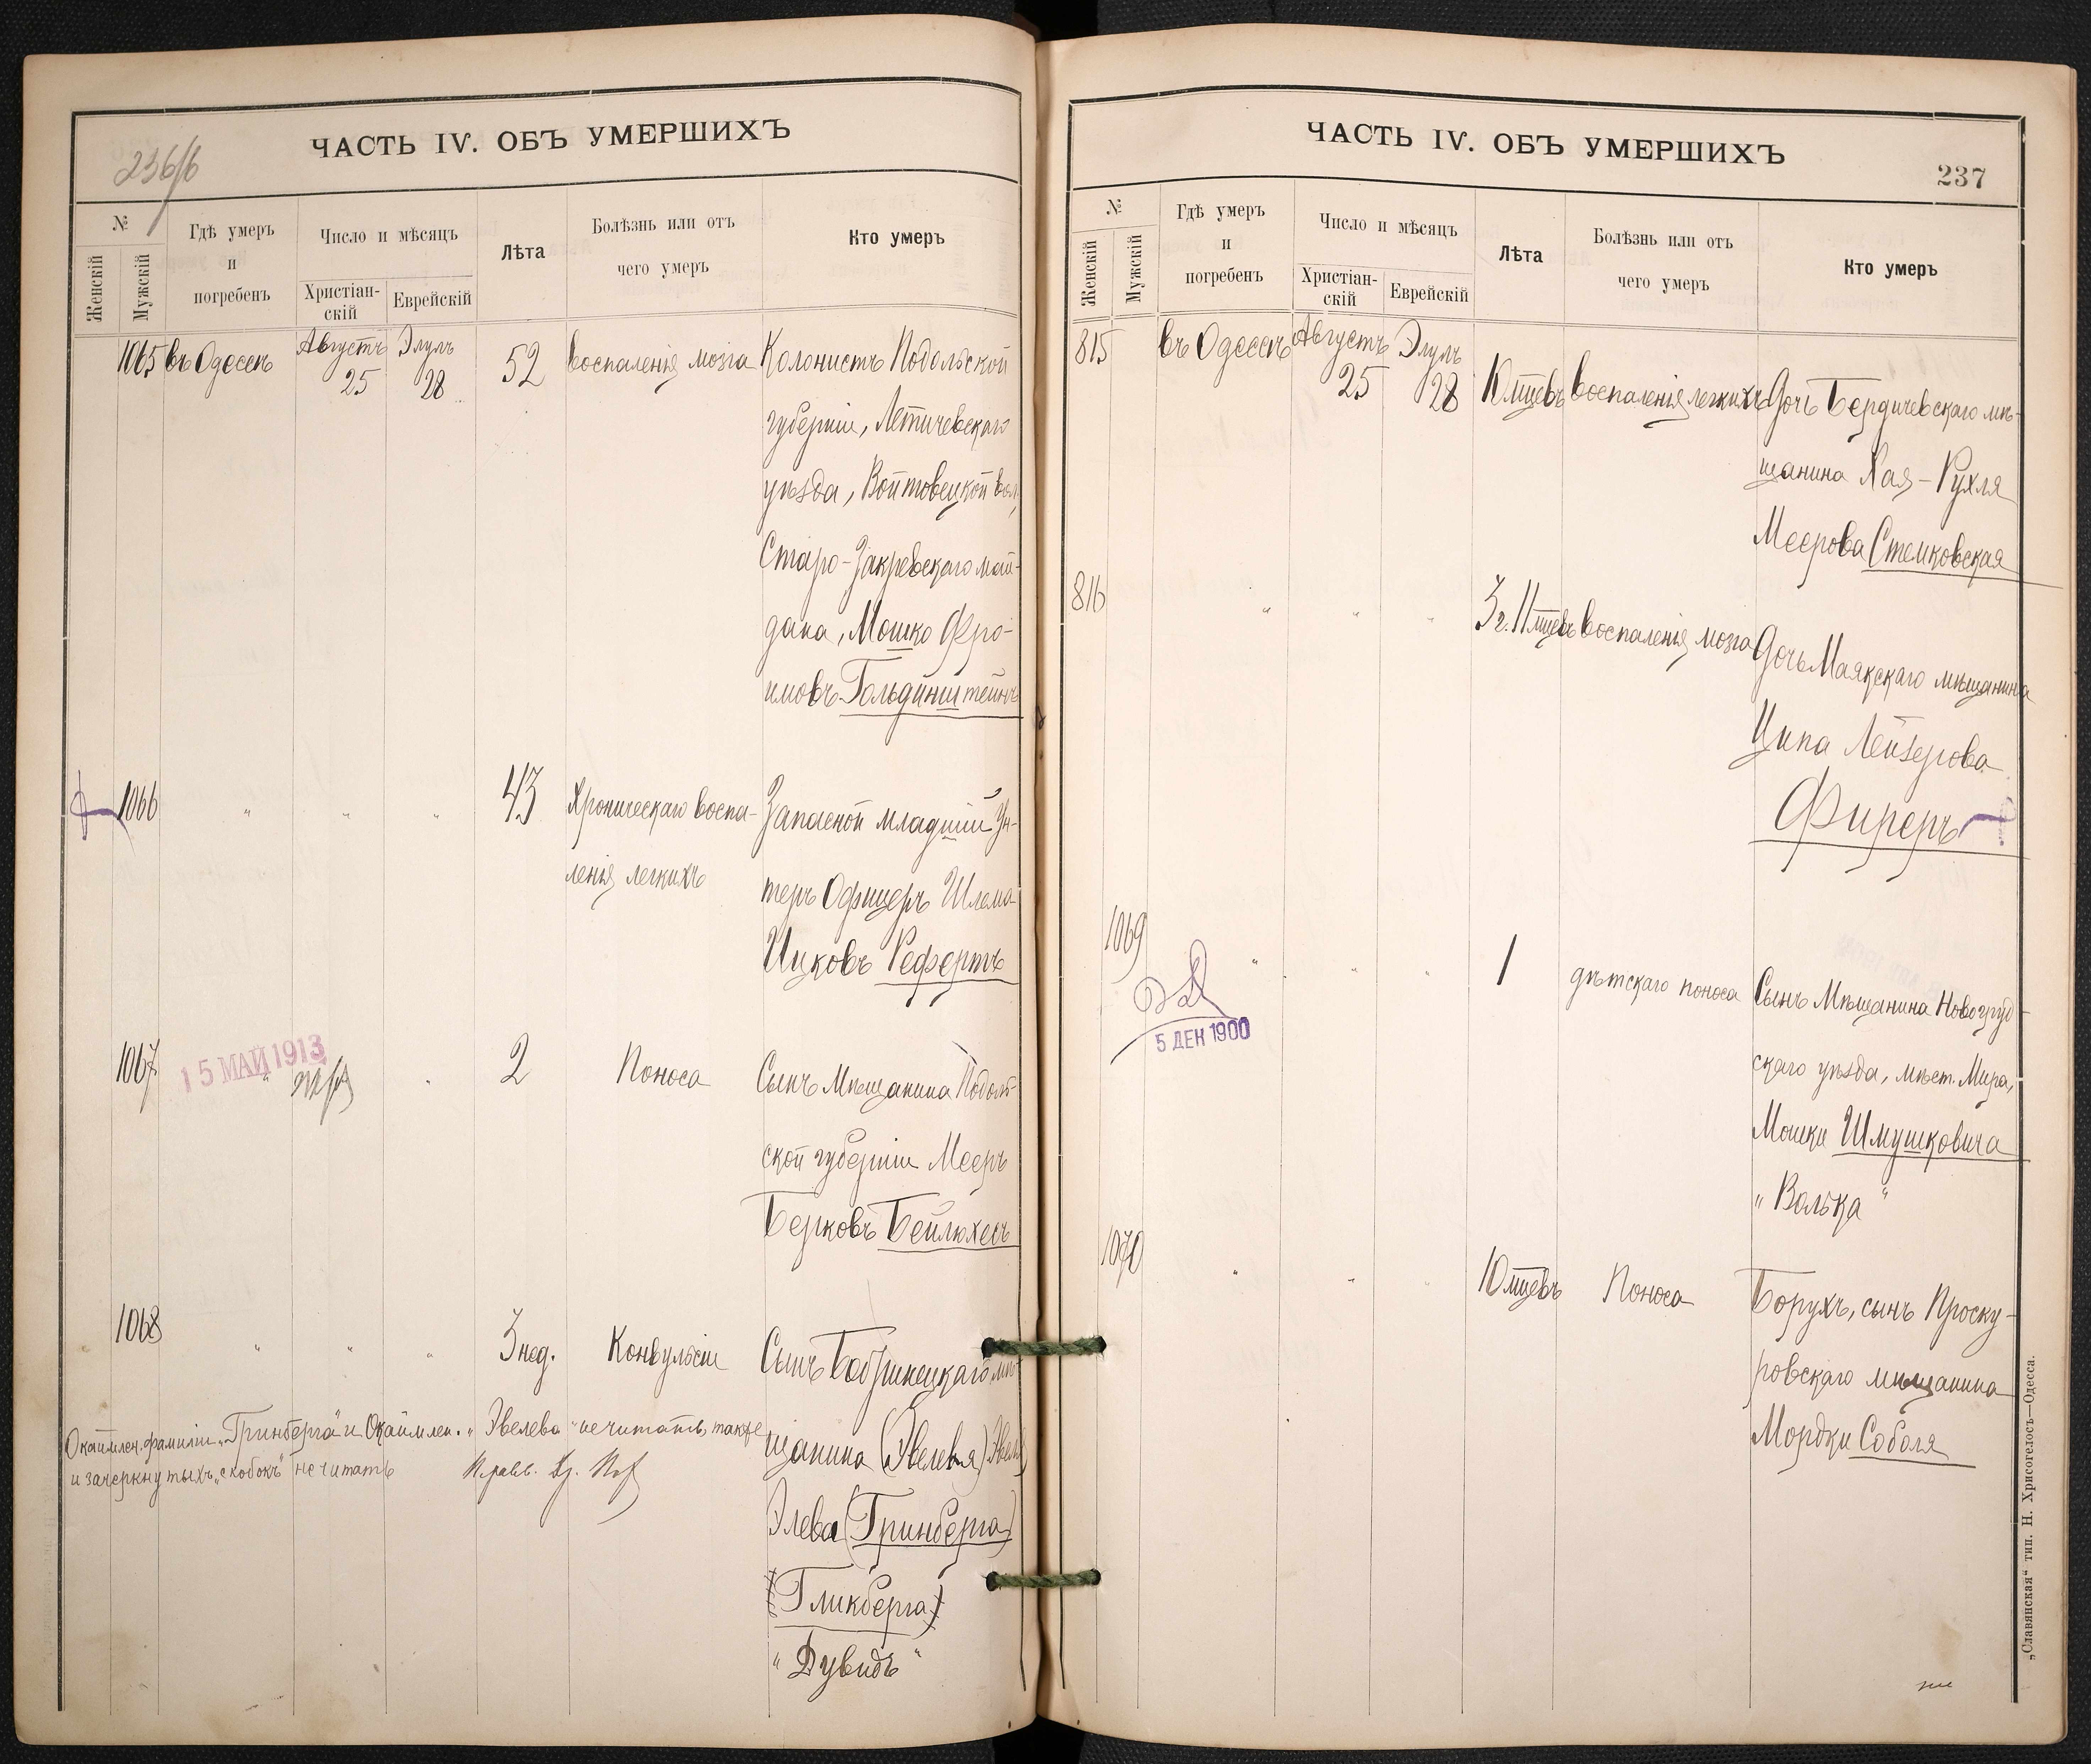 ЧАСТЬ IV. ОБЪ УМЕРШИХЪ
236/б
№
Женскій
Мужскій
Гдѣ умеръ
и
погребенъ
Число и мѣсяцъ
Христіан-
скій
Еврейскій
Лѣта
Болѣзнь или отъ
чего умеръ
Кто умеръ
1065 въ Одессѣ Августъ 25 Элулъ 28 52 воспаленія мозга Колонистъ Подольской
губерніи, Летичевскаго
уѣзда, Войтовецкой вол.
Старо-Закревскаго май-
дана, Мошко Фро-
имовъ Гольдинштейнъ
1066 " " " 43 Хроническаго воспа- Запасной младшій Ун-
ленія легкихъ теръ Офицеръ Шлема
Ицковъ Рефертъ
1067 " " 2 Поноса Сынъ Мѣщанина Подоль-
15 МАЙ 1913
ской губерніи Мееръ
Берковъ Бейлюхесъ
1068 " " " 3 нед. Конвульсіи Сынъ Бобринецкаго мѣ-
щанина (Эвелевя)
Элева (Гринберга)
(Гликберга)
"Дувидъ"
Окаймлен. фамиліи "Гринберга" и Окаймлен. "Эвелева" не читать, также
и зачеркнутыхъ "скобокъ" не читать
ЧАСТЬ IV. ОБЪ УМЕРШИХЪ
237
№
Женскій
Мужскій
Гдѣ умеръ
и
погребенъ
Число и мѣсяцъ
Христіан-
скій
Еврейскій
Лѣта
Болѣзнь или отъ
чего умеръ
Кто умеръ
815 въ Одессѣ Августъ 25 Элулъ 28 10 мцевъ воспаленія легкихъ Дочь Бердичевскаго мѣ-
щанина Хая-Рухля
Меерова Стемковская
816 " " " 3 г. 11 мцевъ воспаленія мозга Дочь Маякскаго мѣщанина
Ципа Лейзерова
Фиреръ
1069 " " " 1 дѣтскаго поноса Сынъ Мѣщанина Новогруд-
5 ДЕК 1900
скаго уѣзда, мѣст. Мира,
Мошки Шмушковича
"Волька"
1070 " " " 10 мцевъ Поноса Борухъ, сынъ Проску-
ровскаго мѣщанина
Мордки Соболя
„Славянская“ тип. Н. Хрисогелосъ—Одесса.